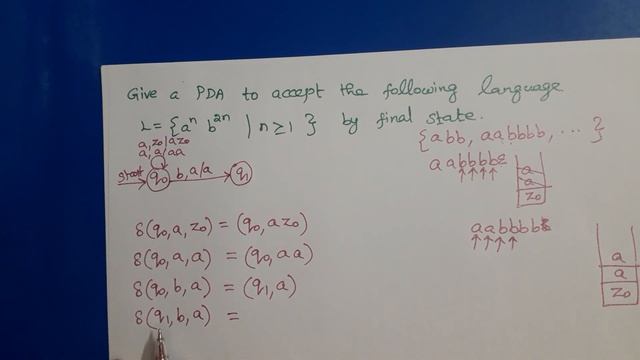 Give a PDA to accept the following language
L = {aⁿ b²ⁿ | n ≥ 1} by final state.
{abb, aabbbb, ... }
a, z₀/az₀
a, a/aa
start q₀ b, a/a q₁
aabbbbε
↑↑↑↑
a
a
z₀
δ(q₀, a, z₀) = (q₀, az₀)
δ(q₀, a, a) = (q₀, aa)
δ(q₀, b, a) = (q₁, a)
δ(q₁, b, a) =
aabbbbε
↑↑↑↑
a
a
z₀